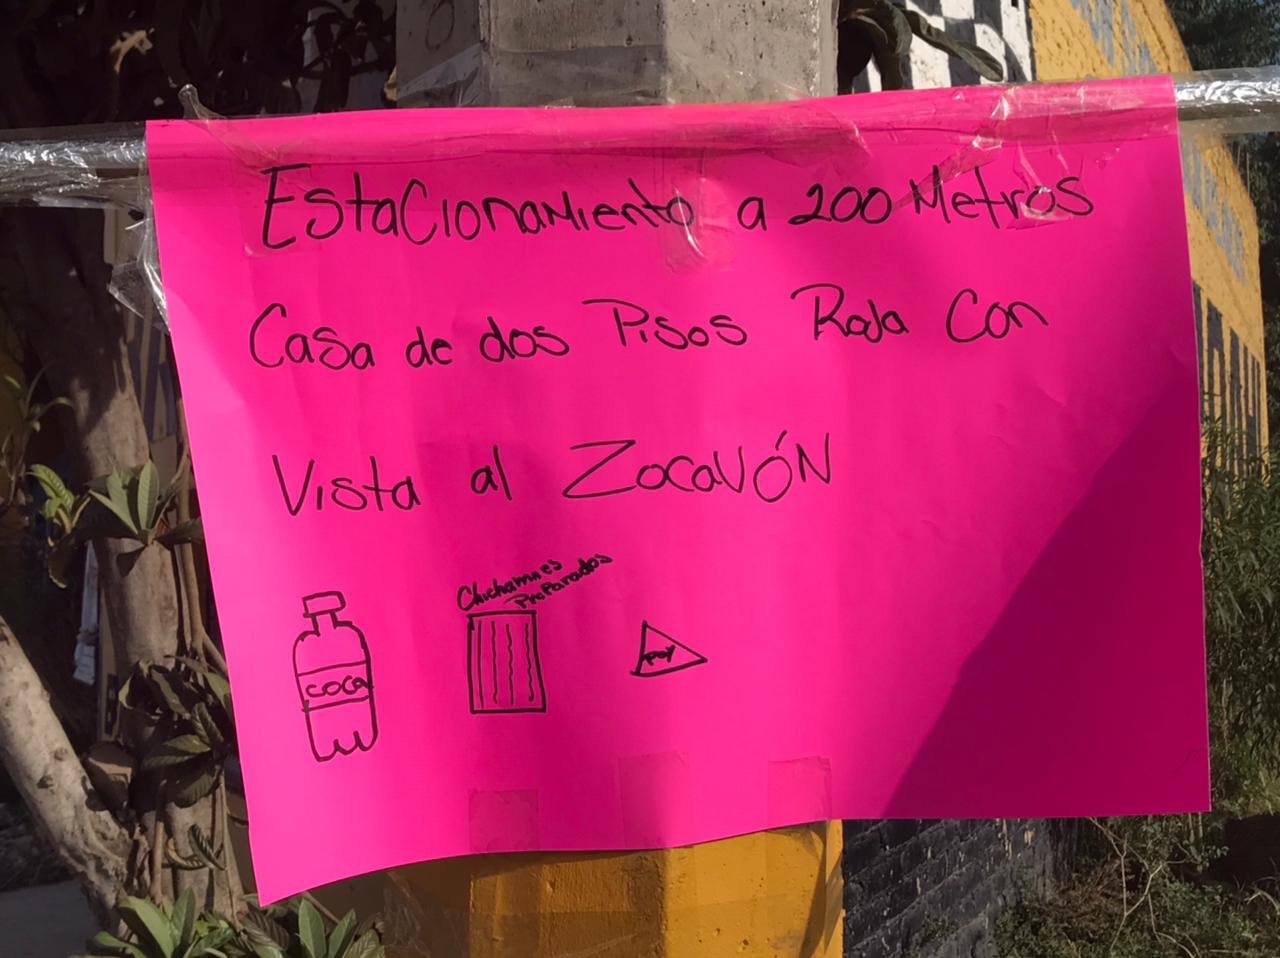 Estacionamiento a 200 Metros
Casa de dos Pisos Roja Con
Vista al Zocavón
Chicharrones
Preparados
COCA